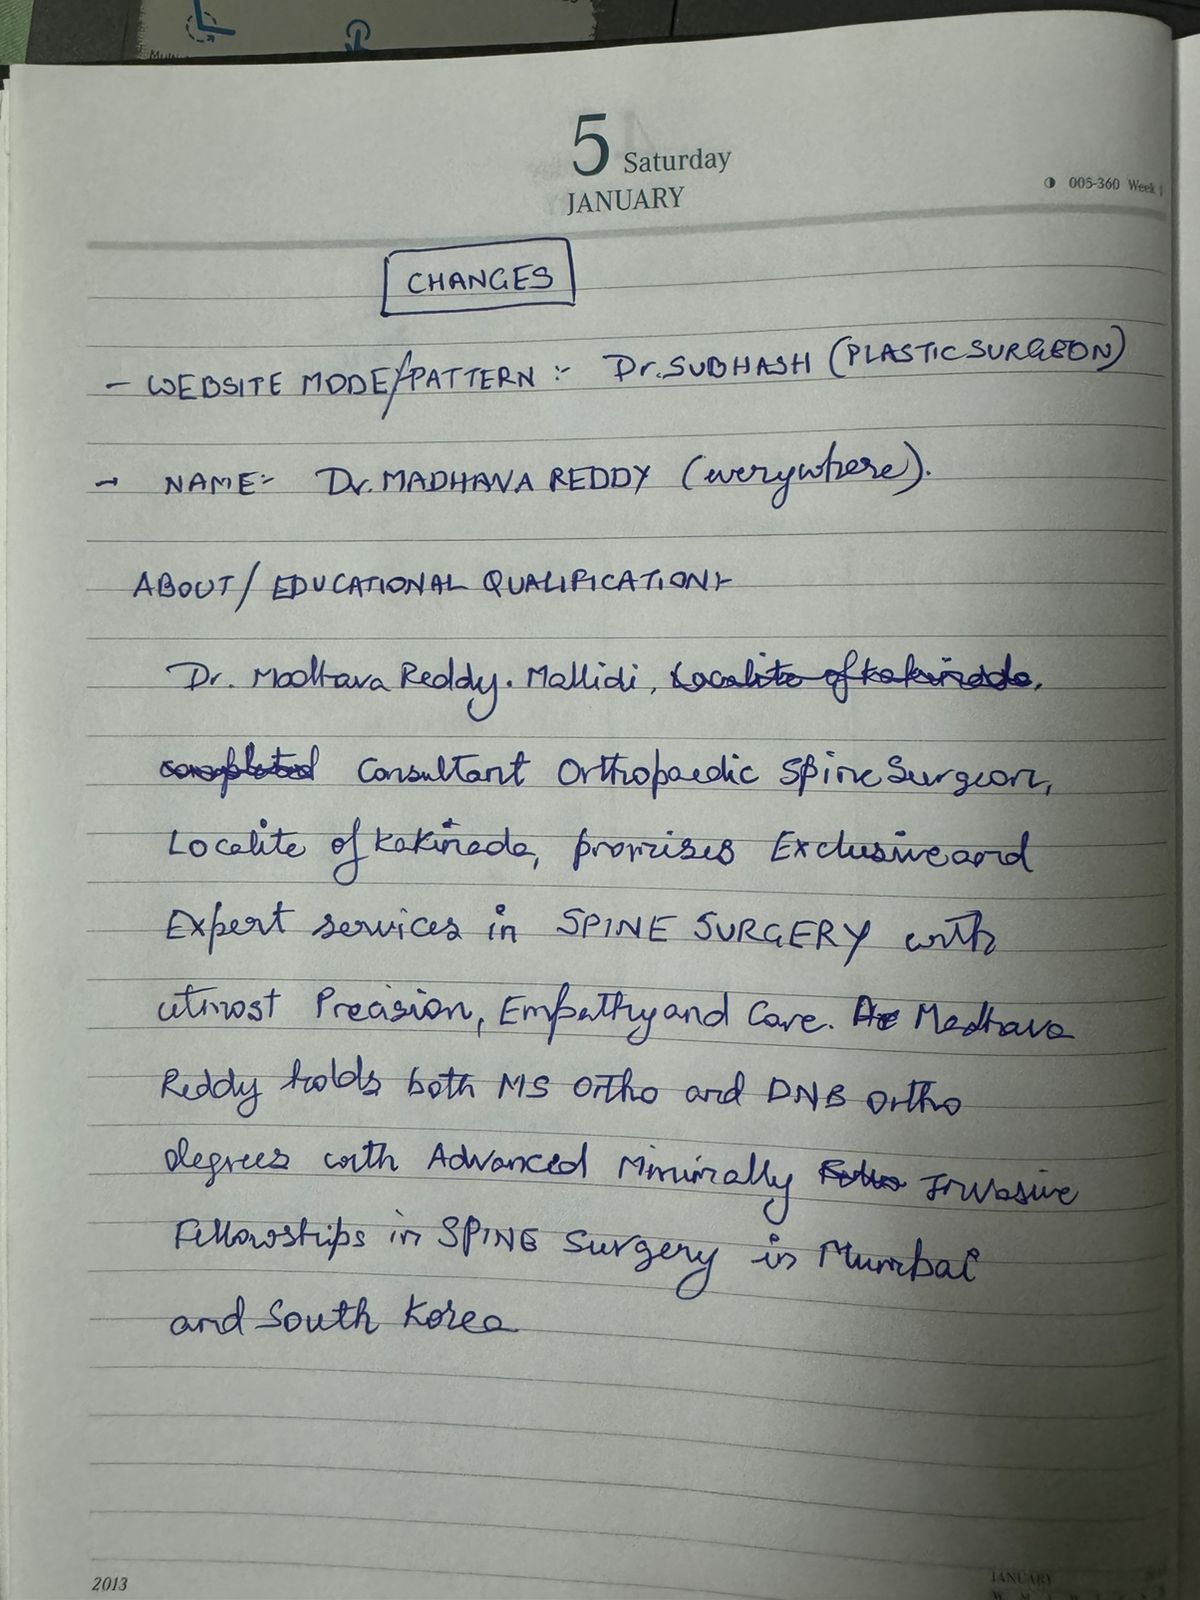 5 Saturday
JANUARY
005-360 Week 1
CHANGES
- WEBSITE MODE/PATTERN :- Dr. SUBHASH (PLASTIC SURGEON)
- NAME:- Dr. MADHAVA REDDY (everywhere).
ABOUT / EDUCATIONAL QUALIFICATION:-
Dr. Madhava Reddy. Mallidi, Localite of Kakinada,
completed Consultant Orthopaedic Spine Surgeon,
Localite of Kakinada, promises Exclusive and
Expert services in SPINE SURGERY with
utmost Precision, Empathy and Care. He Madhava
Reddy holds both MS Ortho and DNB Ortho
degrees with Advanced Minimally Invasive
Fellowships in SPINE Surgery in Mumbai
and South Korea
2013
JANUARY